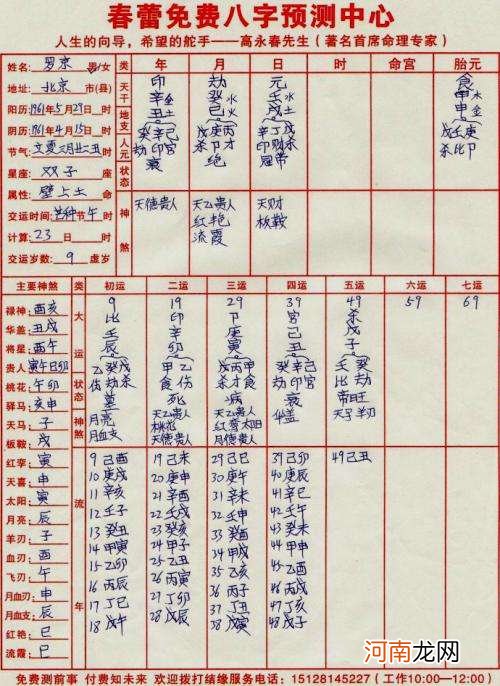 春蕾免费八字预测中心
人生的向导，希望的舵手——高永春先生（著名首席命理专家）
姓名: 罗京 男/女 类 年 月 日 时 命宫 胎元
地址: 北京 市(县) 天干 印 劫 元 食
阳历: 1961年5月29日 时 辛金 癸水 壬水 甲木
阴历: 1961年4月15日 时 地支 丑土 巳火 戌土 申金
节气: 时 人元 癸辛己 戊庚丙 辛丁戊 戊壬庚
劫印官 杀卩才 印财杀 杀比卩
星座: 双子 座 状态 衰 绝 冠带
属性: 壁上土 命
交运时间: 芒种节午 时 神煞 天德贵人 天乙贵人 天财
计算: 23 日 时 红艳 板鞍
交运岁数: 9 虚岁 流霞
主要神煞 类 初运 二运 三运 四运 五运 六运 七运
禄神: 酉亥 大运 9 19 29 39 49 59 69
华盖: 丑戌 比 印 卩 官 杀
将星: 酉午 壬 辛 庚 己 戊
贵人: 寅午巳卯 辰 卯 寅 丑 子
桃花: 午卯 状态 乙癸戊 甲乙 戊丙甲 癸辛己 壬癸
驿马: 亥申 伤劫杀 食伤 杀才食 劫印官 比劫
天马: 子 墓 死 病 衰 帝旺
板鞍: 戌 神煞 月亮 天乙贵人 天乙贵人 华盖 天子羊刃
红孪: 寅 月血支 桃花 红孪太阳
天德贵人 月德贵人
天喜: 申 流年 9己酉 19己未 29己巳 39己卯 49己丑
太阳: 寅 10庚戌 20庚申 30庚午 40庚辰
月亮: 辰 11辛亥 21辛酉 31辛未 41辛巳
羊刃: 子 12壬子 22壬戌 32壬申 42壬午
血刃: 酉 13癸丑 23癸亥 33癸酉 43癸未
飞刃: 午 14甲寅 24甲子 34甲戌 44甲申
月血刃: 申 15乙卯 25乙丑 35乙亥 45乙酉
月血支: 辰 16丙辰 26丙寅 36丙子 46丙戌
红艳: 巳 17丁巳 27丁卯 37丁丑 47丁亥
流霞: 巳 18戊午 28戊辰 38戊寅 48戊子
河南龙网
免费测前事 付费知未来 欢迎拨打结缘服务电话：15128145227（工作10:00—12:00）